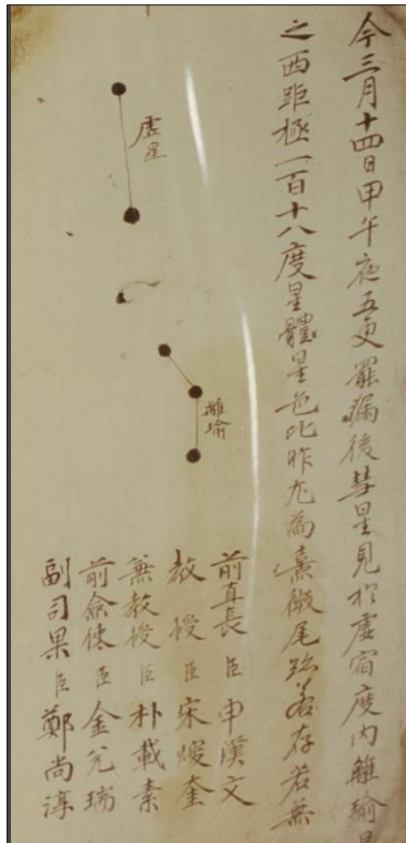 今三月十四日甲午夜五更罷漏後彗星見於虛宿度內離瑜星
之西距極一百十八度星體星色比昨尤爲熹微尾跡若存若無
前直長臣申漢文
教授臣宋煖奎
兼教授臣朴載素
前僉使臣金兌瑞
副司果臣鄭尚淳
虛星
離瑜